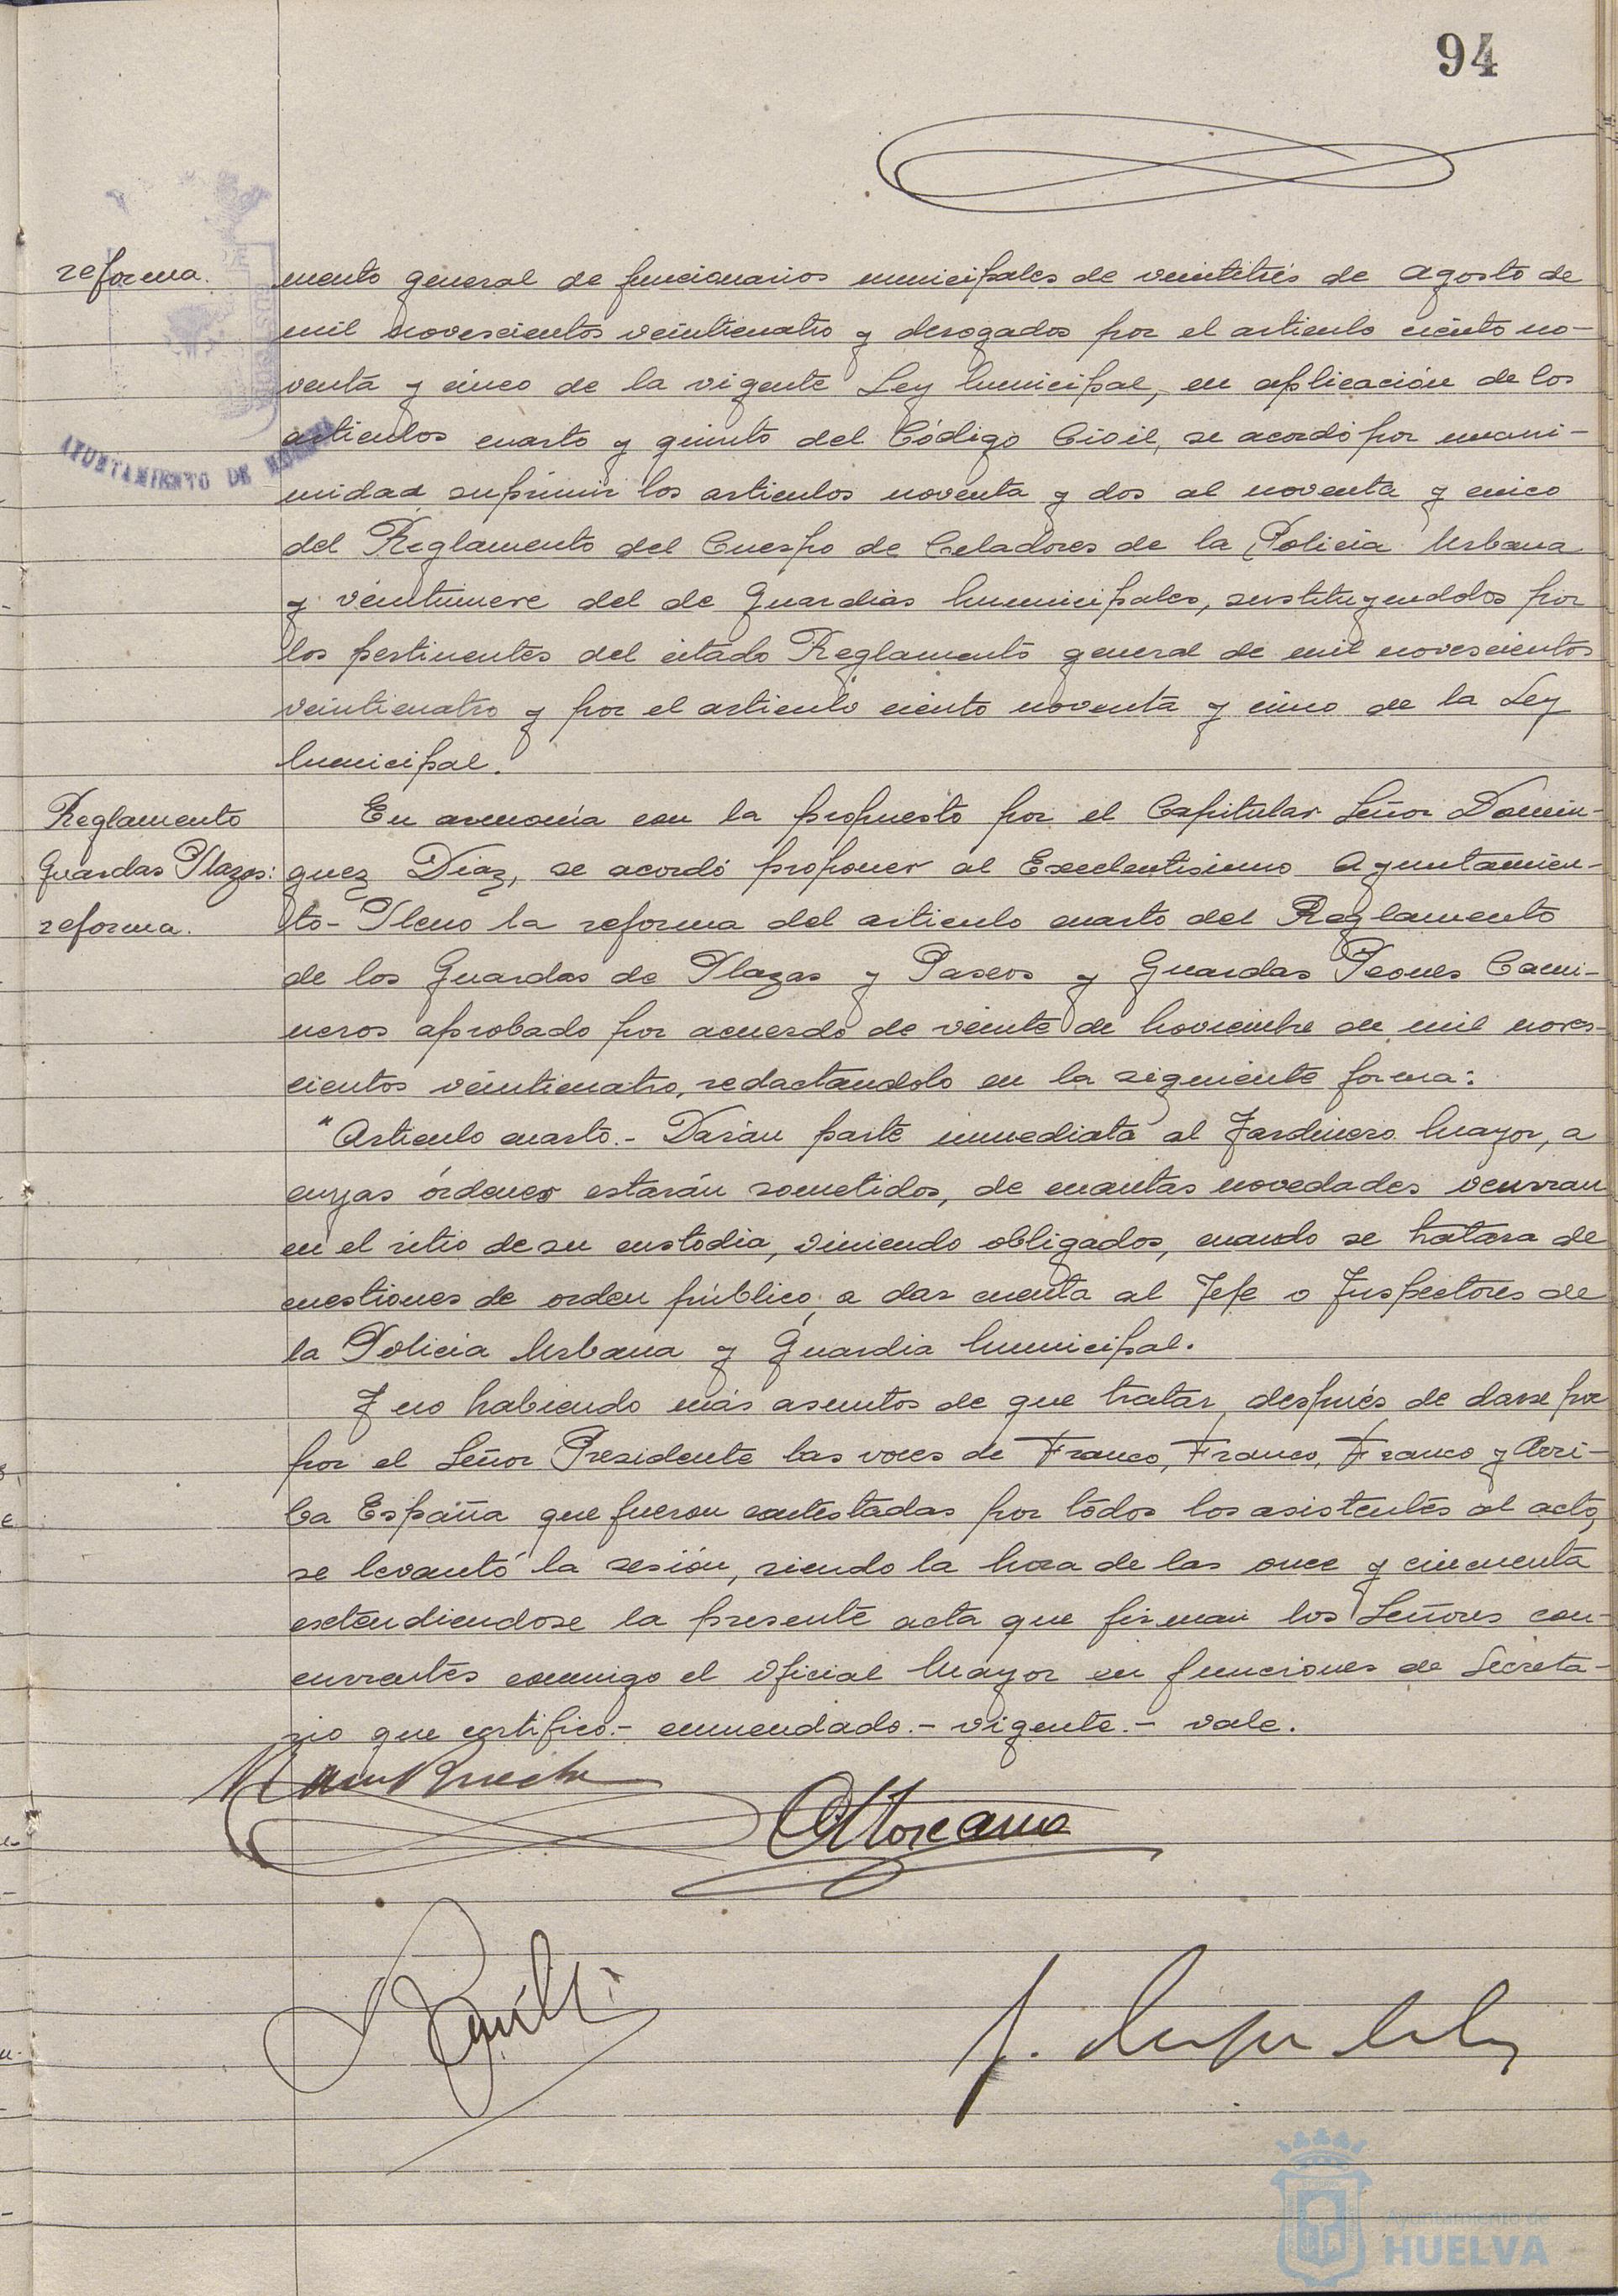 94
reforma.
mento general de funcionarios municipales de veintitrés de agosto de
mil novescientos veinticuatro y derogados por el articulo ciento no-
venta y cinco de la vigente Ley Municipal, en aplicación de los
articulos cuarto y quinto del Código Civil, se acordó por unani-
midad suprimir los articulos noventa y dos al noventa y cinco
del Reglamento del Cuerpo de Celadores de la Policia Urbana
y veintinueve del de Guardias Municipales, sustituyendolos por
los pertinentes del citado Reglamento general de mil novescientos
veinticuatro y por el articulo ciento noventa y cinco de la Ley
Municipal.
Reglamento
Guardas Plazas:
reforma.
En armonía con la propuesto por el Capitular Señor Domin-
guez Diaz, se acordó proponer al Excelentisimo Ayuntamien-
to-Pleno la reforma del articulo cuarto del Reglamento
de los Guardas de Plazas y Paseos y Guardas Peones Cami-
neros aprobado por acuerdo de veinte de Noviembre de mil noves-
cientos veinticuatro, redactandolo en la siguiente forma:
"Articulo cuarto.- Darán parte inmediata al Jardinero Mayor, a
cuyas órdenes estarán sometidos, de cuantas novedades ocurran
en el sitio de su custodia, viniendo obligados, cuando se tratara de
cuestiones de orden público, a dar cuenta al Jefe o Inspectores de
la Policia Urbana y Guardia Municipal.
Y no habiendo más asuntos de que tratar, después de darse por
por el Señor Presidente las voces de Franco, Franco, Franco y Arri-
ba España que fueron contestadas por todos los asistentes al acto,
se levantó la sesión, siendo la hora de las once y cincuenta
extendiendose la presente acta que firman los Señores con-
currentes conmigo el Oficial Mayor en funciones de Secreta-
rio que certifico.- enmendado.- vigente.- vale.
AYUNTAMIENTO DE HUELVA
Ayuntamiento de
HUELVA